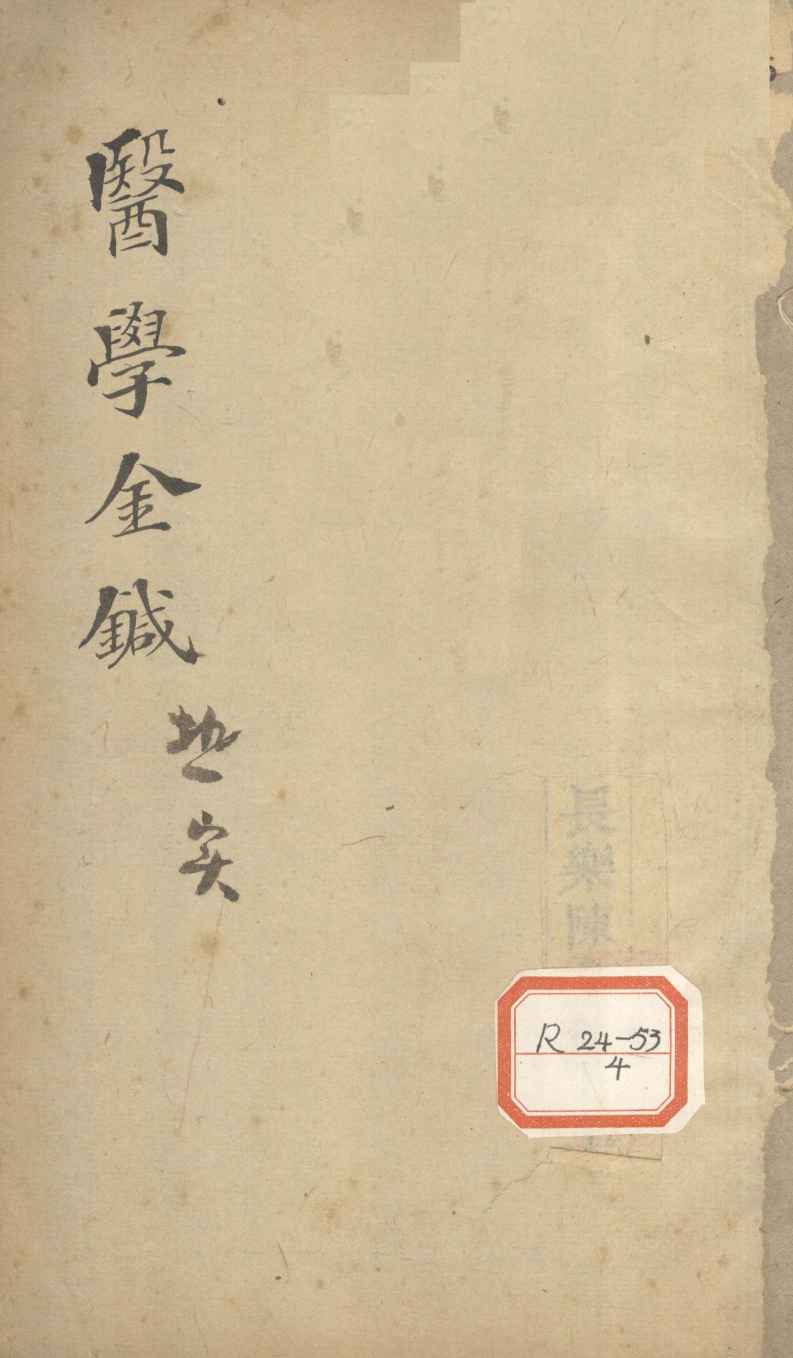 醫學金鍼
热实
長樂陳
R 24-53
4